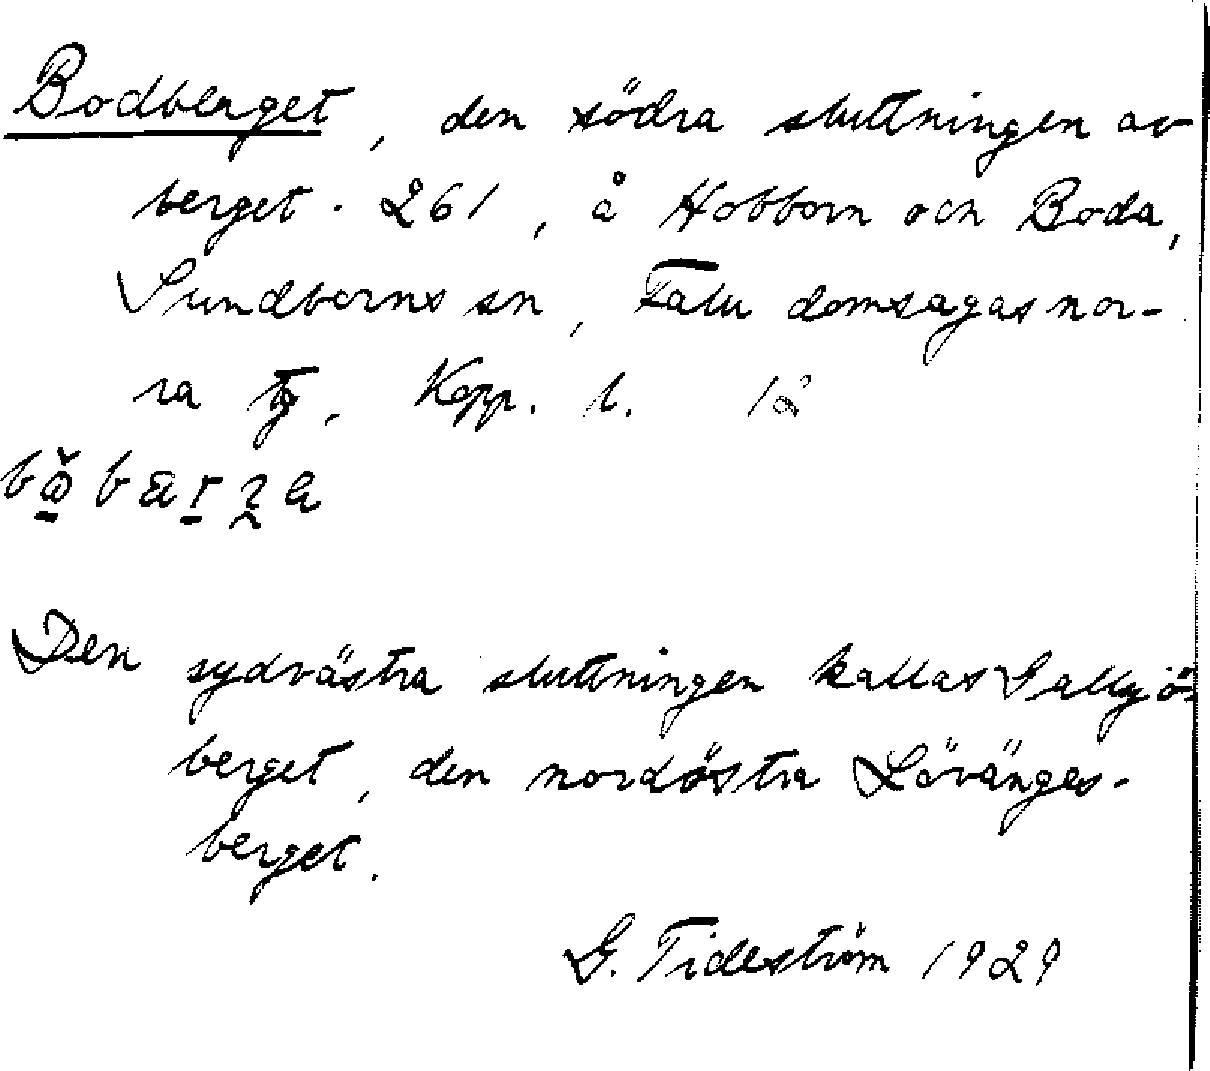 Bodberget, den södra sluttningen av
berget · 261, å Hobborn och Boda,
Sundborns sn, Falu domsagas nor-
ra tg, Kopp. l. 12
Den sydvästra sluttningen kallas Gallsjö-
berget, den nordöstra Lövänges-
berget.
G. Tideström 1929